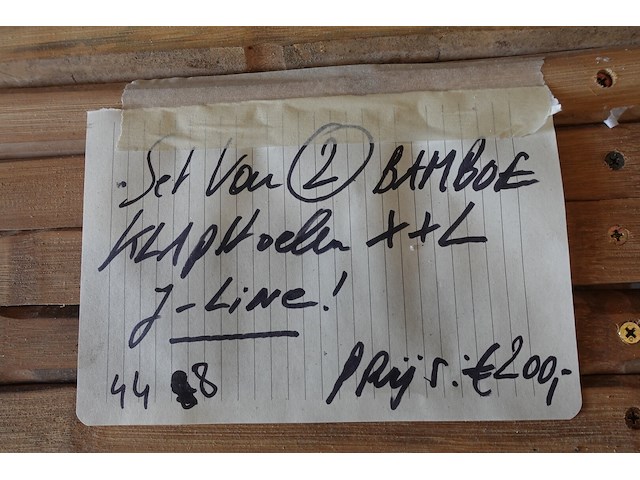 Set van 2 BAMBOE
KLAPstoelen XXL
J-LiNe!
44 8
PRijs: €200,-